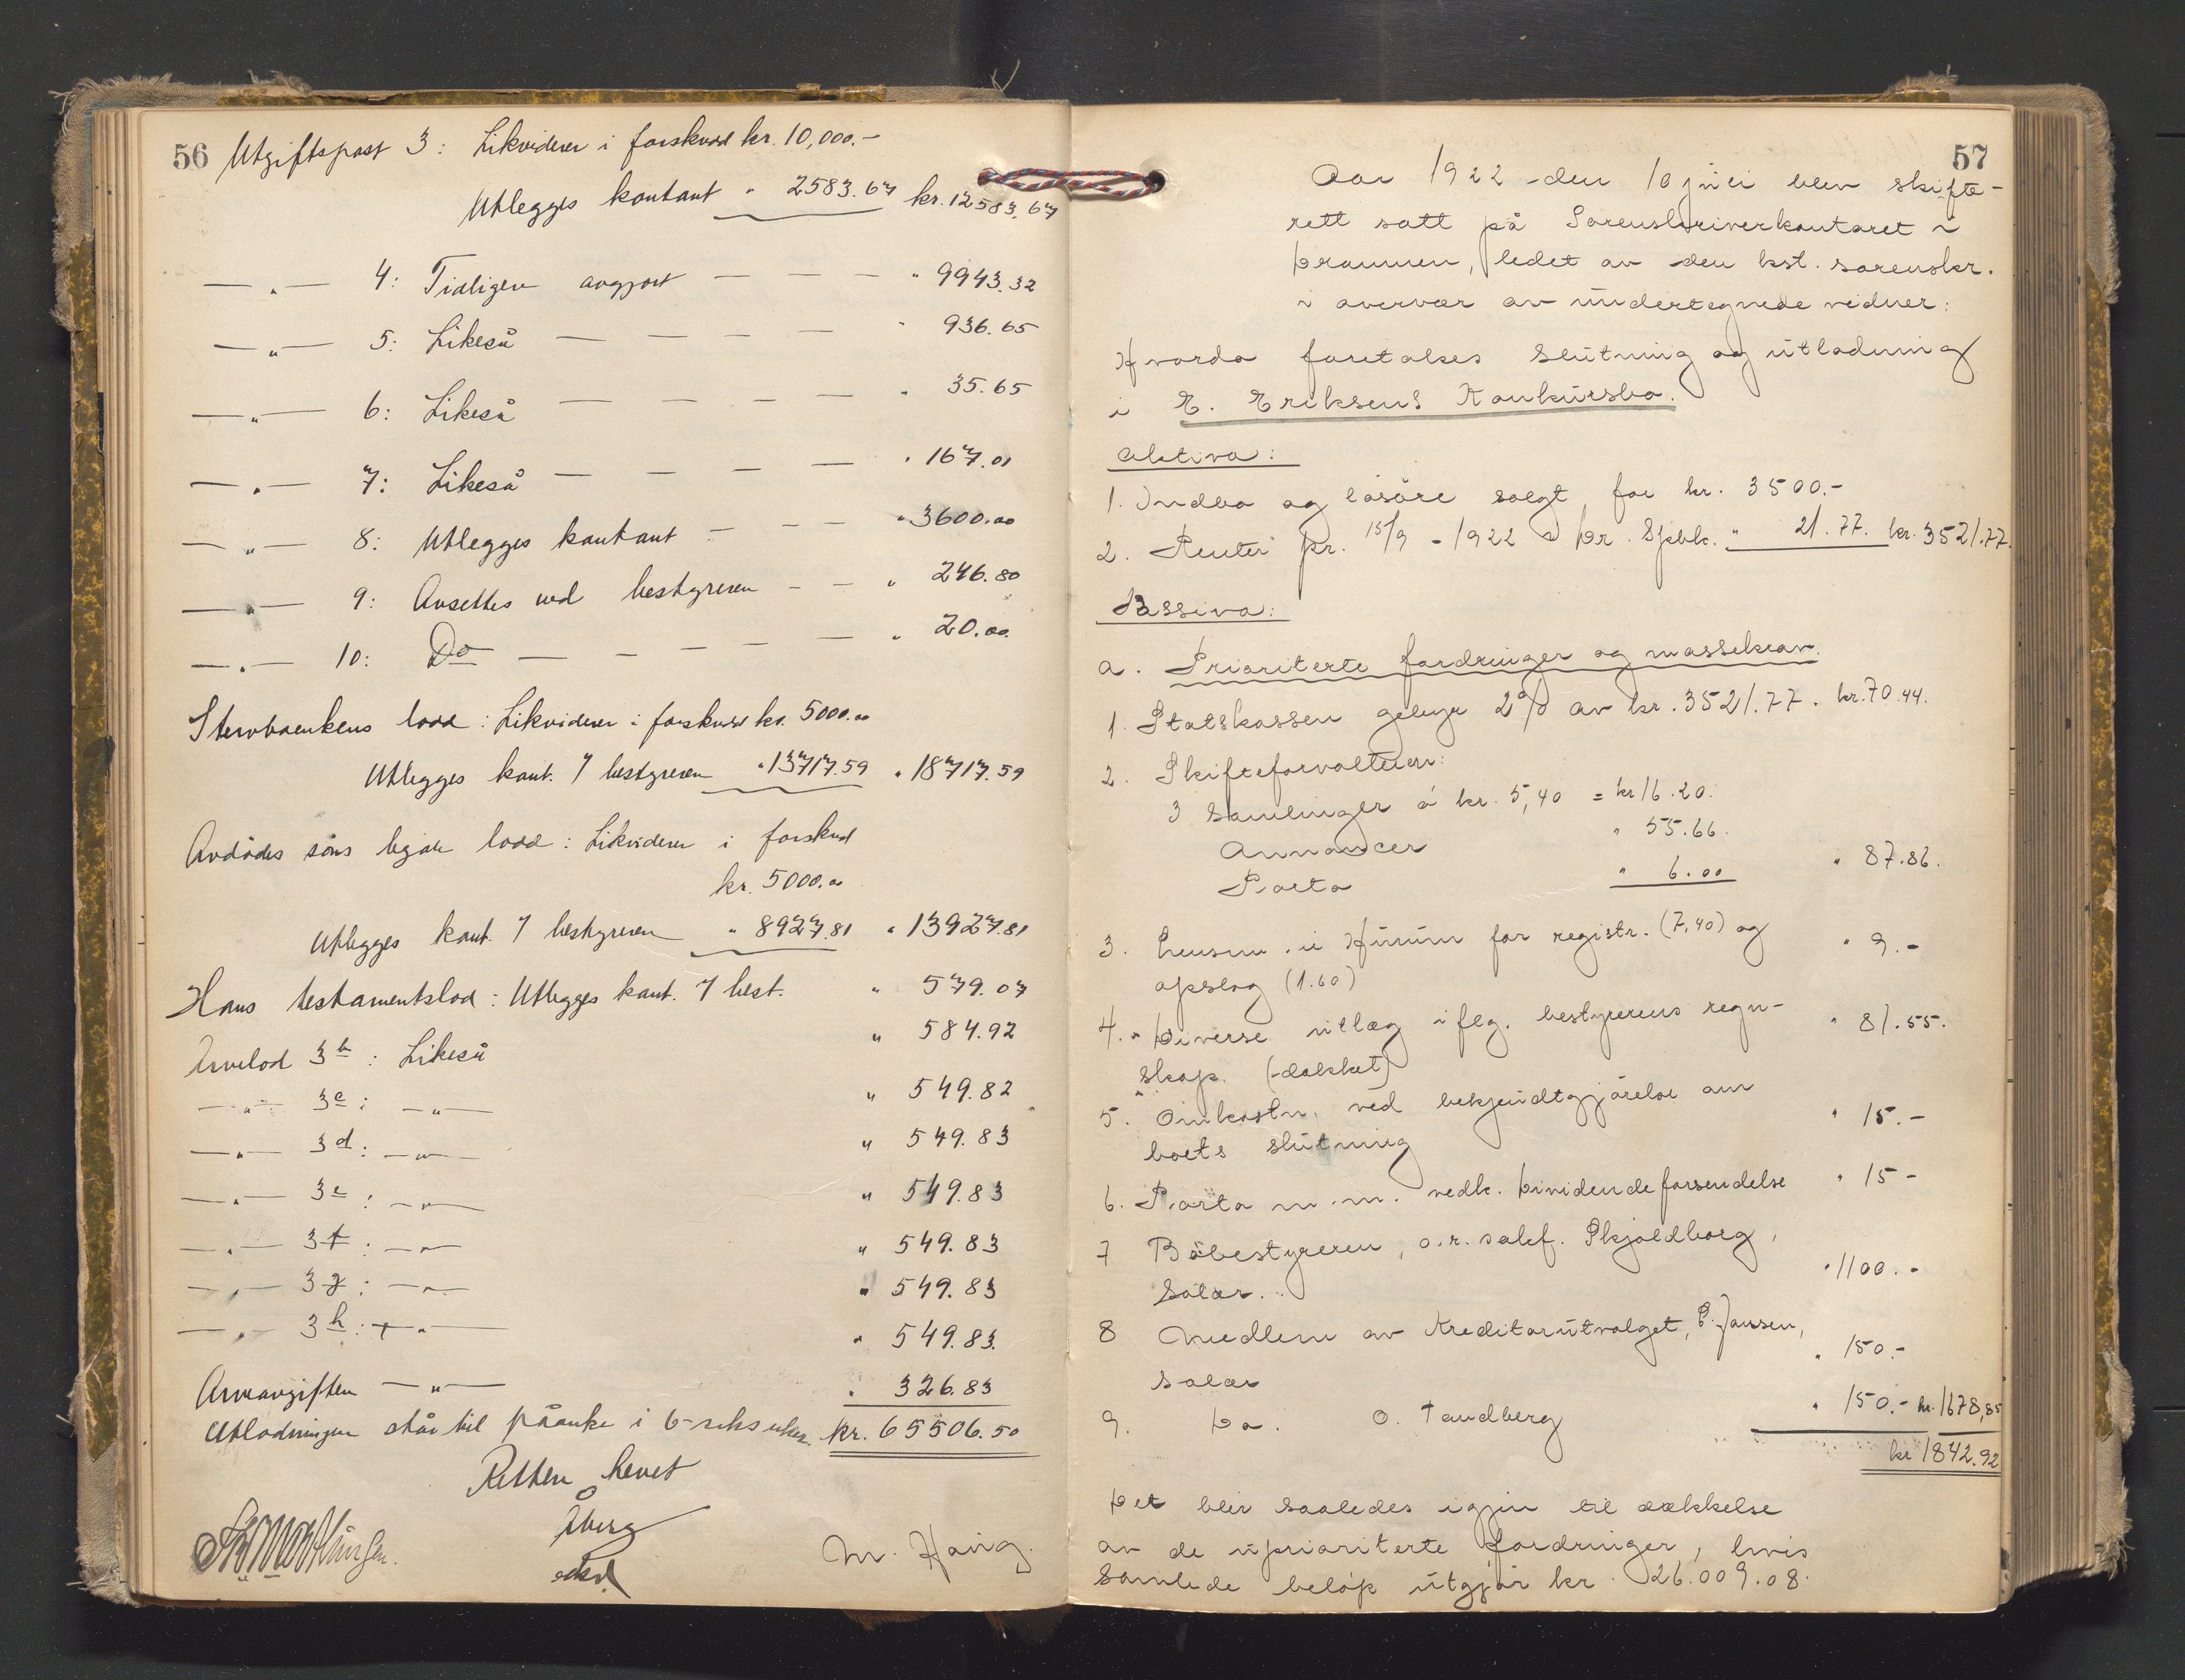 56 Utgiftspost 3: Likviderer i forskudd kr. 10,000.-
Utlegges kontant " 2583.67 kr. 12583.67
—"— 4: Tidligere avgjort — — — " 9943.32
—"— 5: Likeså — — — — " 936.65
—"— 6: Likeså — — — — " 35.65
—"— 7: Likeså — — — — " 167.01
—"— 8: Utlegges kontant — — — " 3600.00
—"— 9: Avsettes ved bestyreren — — " 246.80
—"— 10: Do — — — — " 20.00
Stervboenkens lodd: Likviderer i forskudd kr. 5000.00
Utlegges kont. / bestyreren " 13717.59 " 18717.59
Avdødes søns legale lodd: Likviderer i forskud
kr. 5000.00
Utlegges kont. / bestyreren " 8927.81 " 13927.81
Hans testamentslod: Utlegges kont. / best. " 579.07
Arvelod 3b: Likeså " 584.92
—"— 3c: —"— " 549.82
—"— 3d: —"— " 549.83
—"— 3e: —"— " 549.83
—"— 3f: —"— " 549.83
—"— 3g: —"— " 549.83
—"— 3h: —"— " 549.83.
Arveavgiften —"— " 326.83
Utlodningen står til påanke i 6-seks uker. kr. 65506.50
Retten hevet
Åberg
M. Haug.
57
Aar 1922 den 10 juli blev skifte-
rett satt på Sorenskriverkontoret i
Drammen, ledet av den kst. sorenskr.
i overvær av undertegnede vidner:
Hvorda foretokes slutning og utlodning
i E. Eriksens Konkursbo.
Aktiva:
1. Indbo og løsøre solgt for kr. 3500.-
2. Renter pr. 15/9 - 1922 i Dr. Spbk. " 21.77. kr. 3521.77.
Passiva:
a. Prioriterte fordringer og massekrav.
1. Statskassen gebyr 2% av kr. 3521.77. kr. 70.44.
2. Skifteforvalteren:
3 samlinger á kr. 5,40 = kr 16.20.
Annoncer " 55.66.
Porto " 6.00 " 87.86.
3. Lensm. i Hurum for registr. (7,40) og
opslag (1.60) " 9.-
4. Diverse utlæg ifлg. bestyrerens regn-
skap. (dækket) " 81.55.
5. Omkostn. ved bekjendtgjørelse om
boets slutning " 15.-
6. Porto m.m. vedk. Dividendeforsendelse " 15-
7 Bobestyreren, o.r. sakf. Skjoldborg,
Salær. " 1100.-
8 Medlem av Kreditorutvalget, P. Jansen,
salær " 150.-
9. Do. O. Tandberg " 150.- kr. 1678,85
kr 1842.92
Det blir saaledes igjen til dækkelse
av de uprioriterte fordringer, hvis
samlede beløp utgjør kr. 26.009.08.